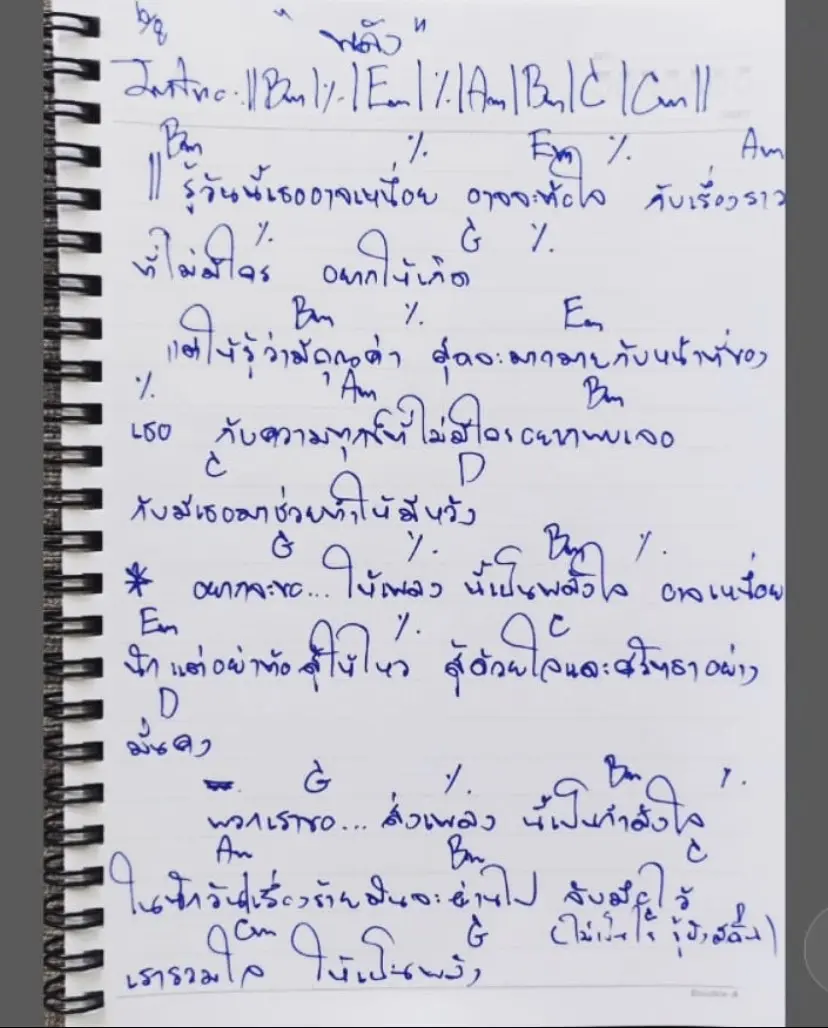 6/8 "พลัง"
Intro. || Bm | ٪. | Em | ٪. | Am | Bm | C | Cm ||
Bm ٪. Em ٪. Am
|| รู้วันนี้เธออาจเหนื่อย อาจจะท้อใจ กับเรื่องราว
٪. G ٪.
ที่ไม่มีใคร อยากให้เกิด
Bm ٪. Em
แต่ให้รู้ว่ามีคุณค่า สุดจะมากมายกับหน้าที่ของ
٪. Am Bm
เธอ กับความทุกข์ที่ไม่มีใครอยากพบเจอ
C D
กับมีเธอมาช่วยทำให้มีหวัง
G ٪. Bm ٪.
* อยากจะขอ... ให้เพลง นี้เป็นพลังใจ อาจเหนื่อย
Em ٪. C
นัก แต่อย่าท้อ สู้ให้ไหว สู้ด้วยใจและศรัทธาอย่าง
D
มั่นคง
G ٪. Bm ٪.
พวกเราขอ... ส่งเพลง นี้เป็นกำลังใจ
Am Bm C
ในสักวันเรื่องร้ายมันจะผ่านไป จับมือไว้
Cm G
เรารวมใจ ให้เป็นพลัง